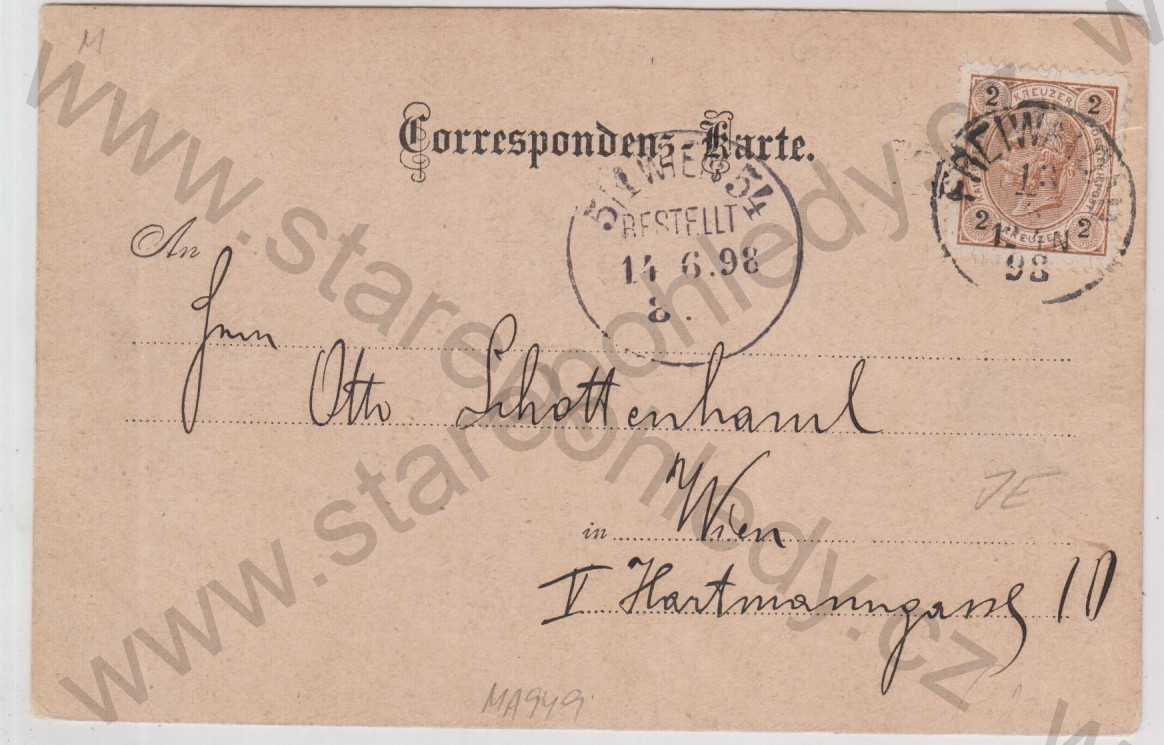 M
Correspondenz-Karte.
2 KREUZER 2
2 KREUZER 2
FREIWA
98
5/1 WIEN 54
BESTELLT
14 6.98
8.
An
Herrn
Otto Schottenhaml
in Wien
V Hartmanngasse 10
JE
MA949
www.starepohledy.cz
www.starepohledy.cz